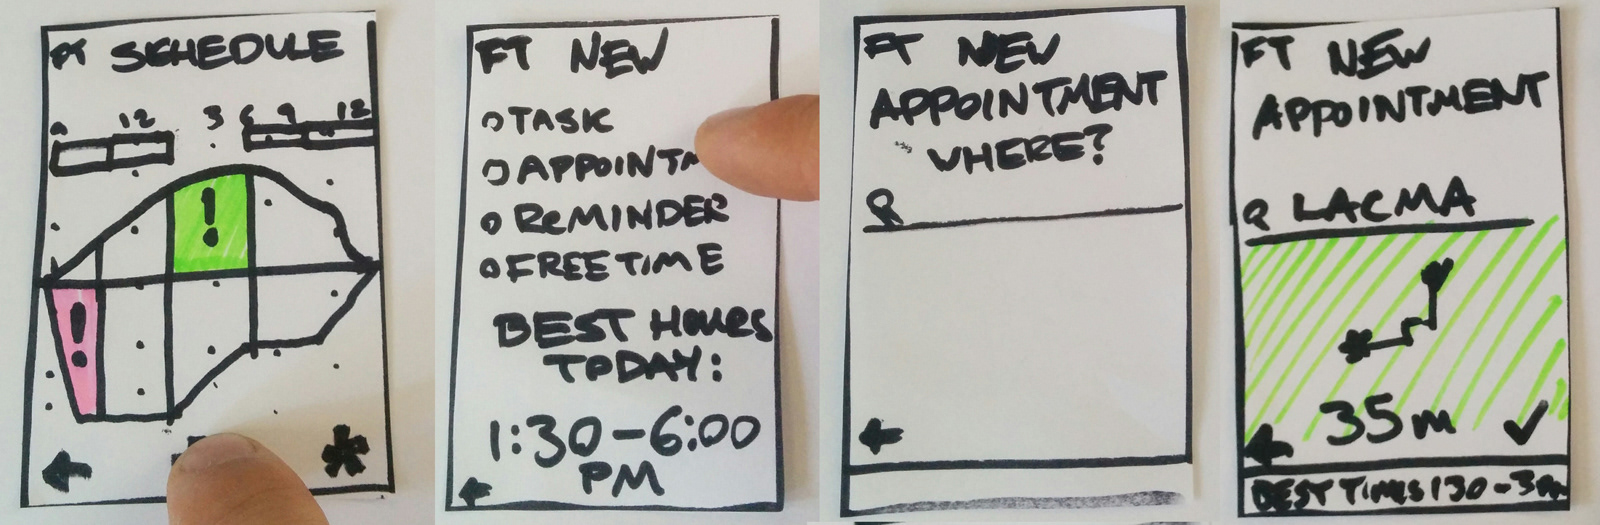 SCHEDULE
12 3 6 9 12
!
!
FT NEW
TASK
APPOINTM
REMINDER
FREE TIME
BEST HOURS
TODAY:
1:30-6:00
PM
FT NEW
APPOINTMENT
WHERE?
FT NEW
APPOINTMENT
LACMA
35m
BEST TIMES 130-3PM